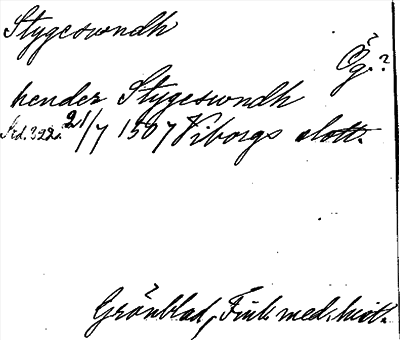 Stygesundh
Ög.?
hender Stygesundh
s. 322. 21/7 1507 Viborgs slott.
Grönblad, Finl. med. hist.